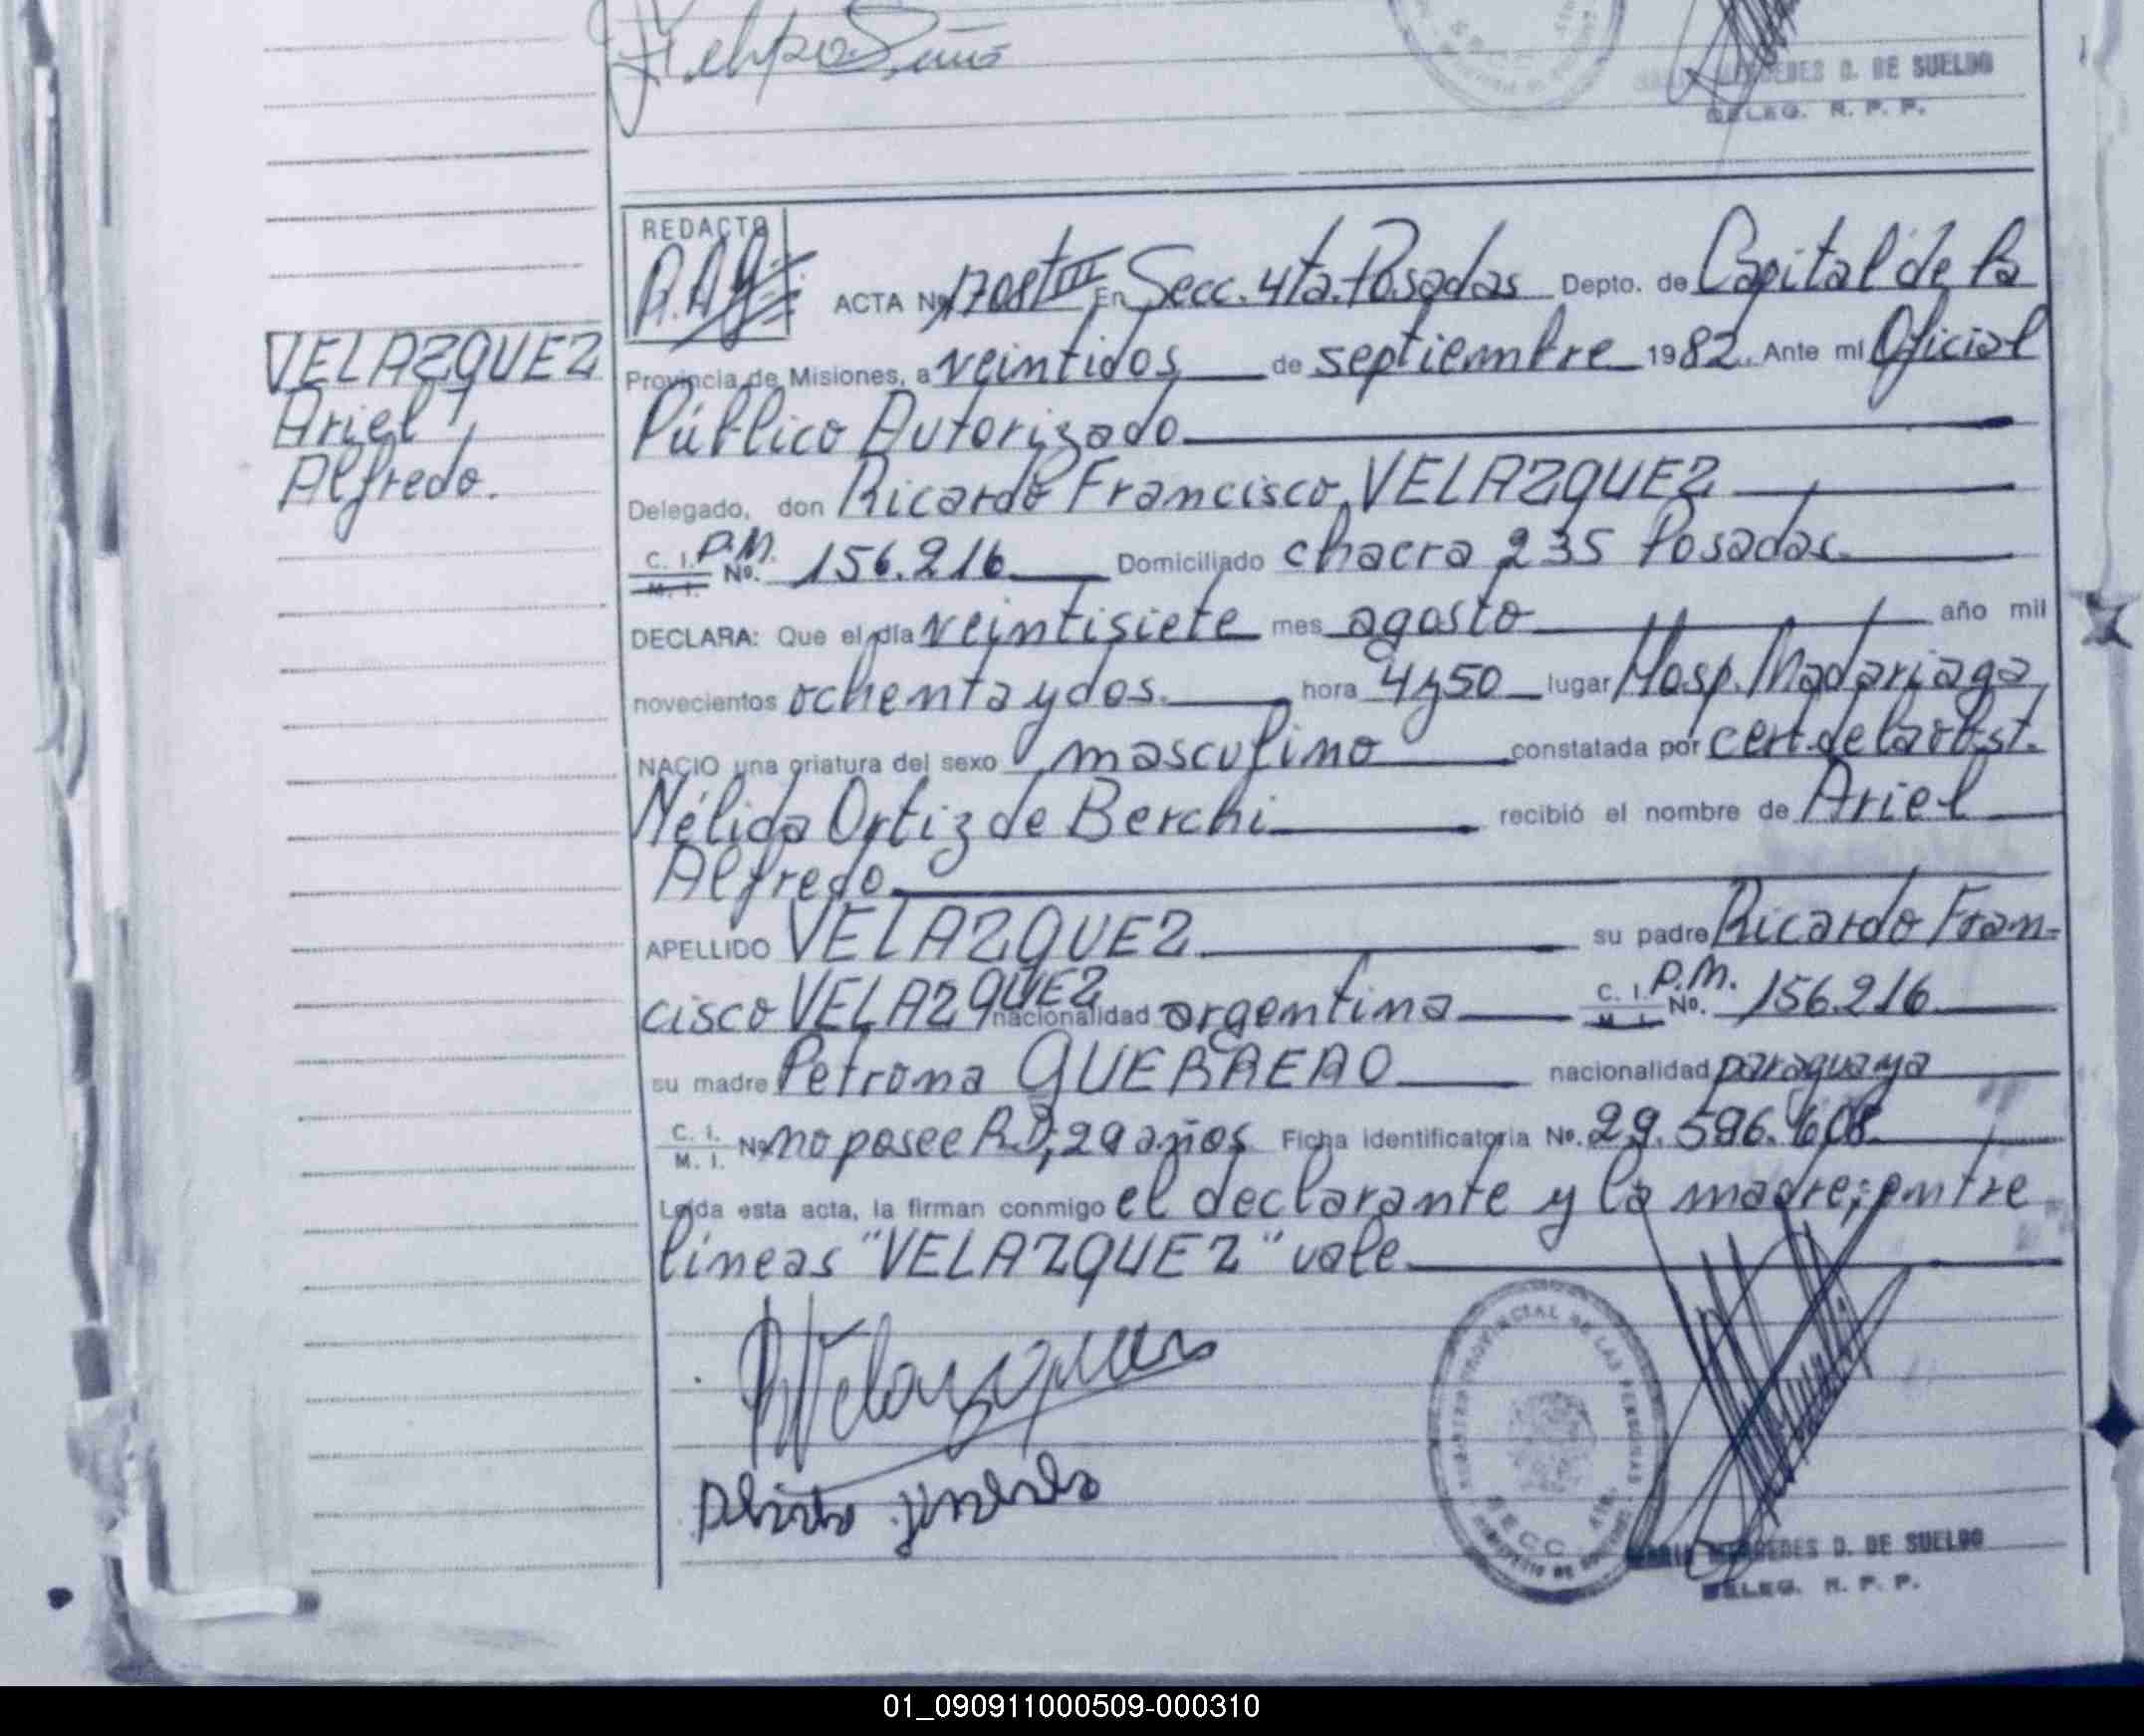 Felipe
MERCEDES D. DE SUELDO
DELEG. R. P. P.
REDACTO
ACTA Nº 1708 tº III En Secc. 4ta. Posadas Depto. de Capital de la
VELAZQUEZ
Ariel
Alfredo.
Provincia de Misiones, a veintidos de septiembre 1982. Ante mi Oficial
Público Autorizado
Delegado, don Ricardo Francisco VELAZQUEZ
C. I. P.M.
M. I. Nº. 156.216 Domiciliado chacra 235 Posadas
DECLARA: Que el día veintisiete mes agosto año mil
novecientos ochenta y dos. hora 4y50 lugar Hosp. Madariaga
NACIO una criatura del sexo masculino constatada por cert. de la obst.
Nélida Ortiz de Berchi recibió el nombre de Ariel
Alfredo
APELLIDO VELAZQUEZ su padre Ricardo Fran-
cisco VELAZQUEZ nacionalidad argentina C. I. P.M.
M. I. Nº. 156.216
su madre Petrona GUERRERO nacionalidad paraguaya
C. I.
M. I. Nº no posee R.D; 29 años Ficha identificatoria Nº. 29.596.608
Leída esta acta, la firman conmigo el declarante y la madre; entre
líneas "VELAZQUEZ" vale
RVelazquez
REGISTRO PROVINCIAL DE LAS PERSONAS
SECC. 4TA.
MARIA MERCEDES D. DE SUELDO
DELEG. R. P. P.
01_090911000509-000310